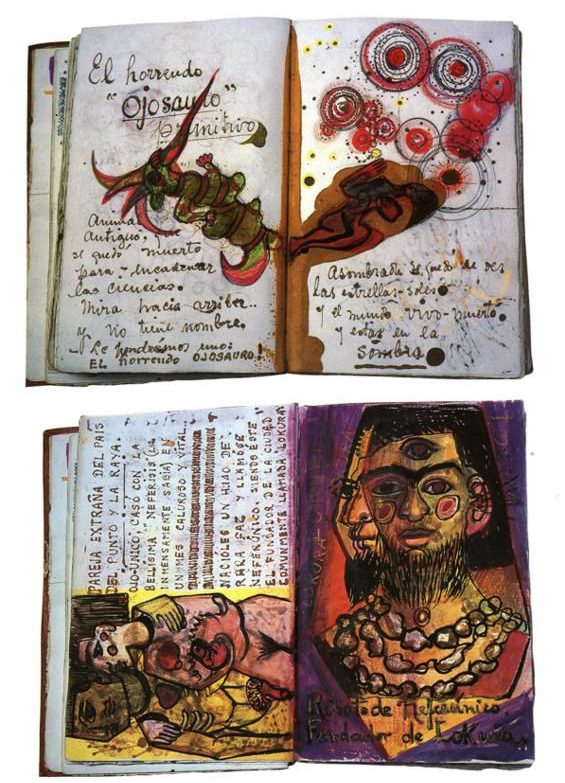 El horrendo
"Ojosauro"
primitivo
Animal
antiguo,
se quedo muerto
para encadenar
las ciencias.
Mira hacia arriba..
y no tiene nombre.
Le pondremos uno:
EL horrendo OJOSAURO!
Asombrada se quedó de ver
las estrellas-soles
y el mundo vivo-muerto
y estar en la
sombra
PAREJA EXTRAÑA DEL PAIS
DEL PUNTO Y LA RAYA.
OJO-UNICO CASÓ CON LA
BELLISIMA "NEFERISIS" (LA
INMENSAMENTE SABIA) EN
UN MES CALUROSO Y VITAL.
NACIÓLES UN HIJO DE
RARA FAZ Y LLAMOSE
NEFERÚNICO, SIENDO ESTE
EL FUNDADOR DE LA CIUDAD
COMUNMENTE LLAMADA "LOKURA"
LOKURA
Retrato de Neferúnico,
Fundador de Lokura.